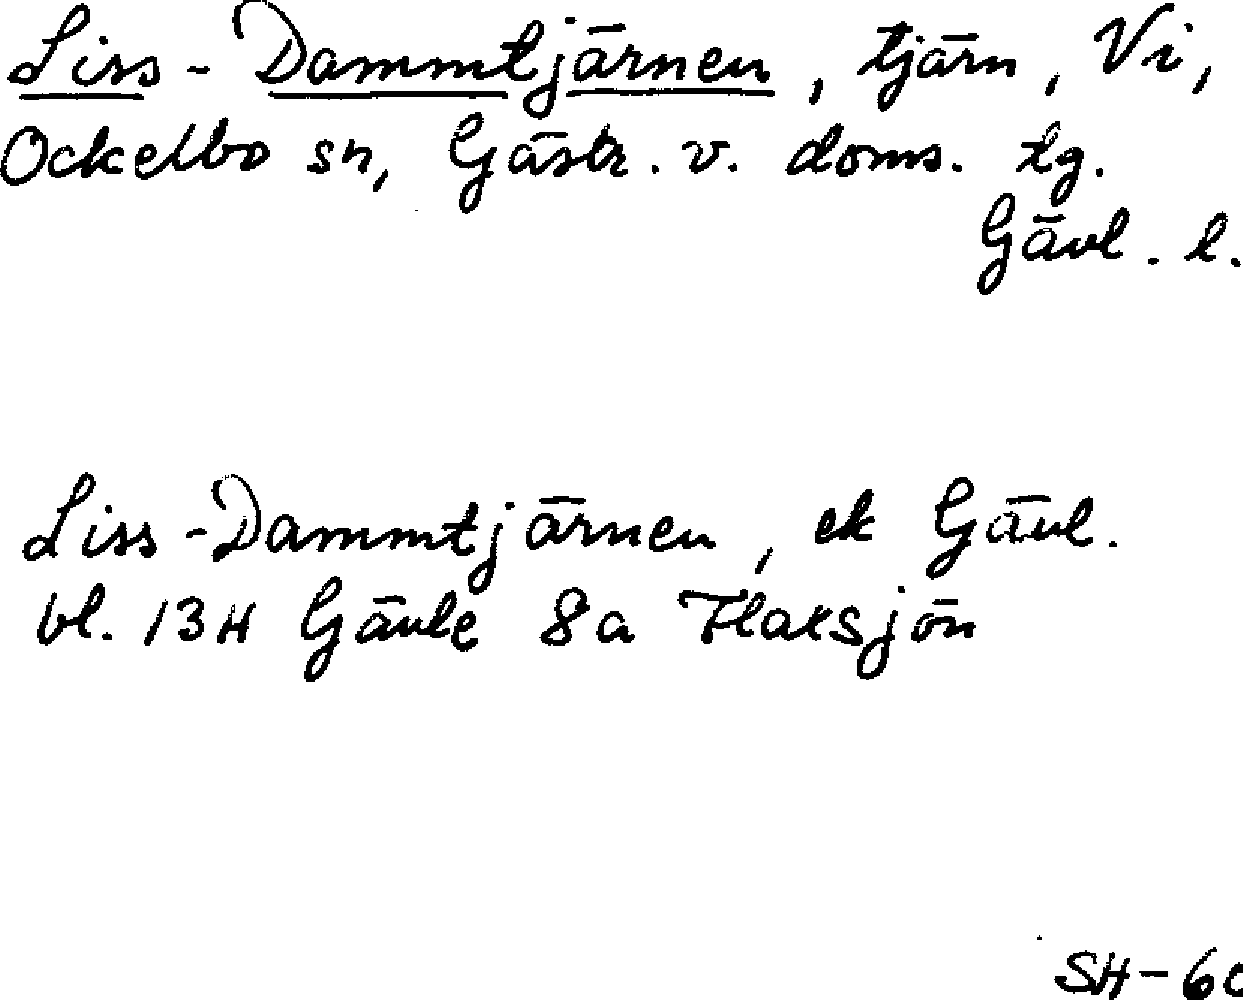 Liss-Dammtjärnen, tjärn, Vi,
Ockelbo sn, Gästr. v. doms. tg.
Gävl. l.
Liss-Dammtjärnen, ek Gävl.
bl. 13H Gävle 8a Flaksjön
SH-60